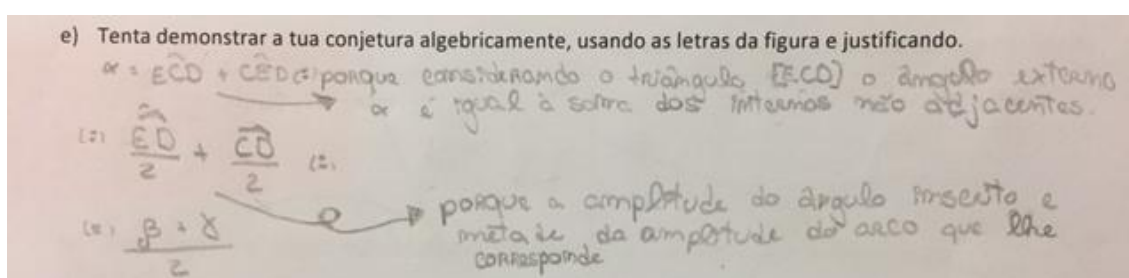 e) Tenta demonstrar a tua conjetura algebricamente, usando as letras da figura e justificando.
α = EĈD + CÊD (=) porque considerando o triângulo [ECD] o ângulo externo
α é igual à soma dos internos não adjacentes.
(=) ED/2 + CB/2 (=)
(=) β + γ / 2
porque a amplitude do ângulo inscrito e
metade da amplitude do arco que lhe
corresponde